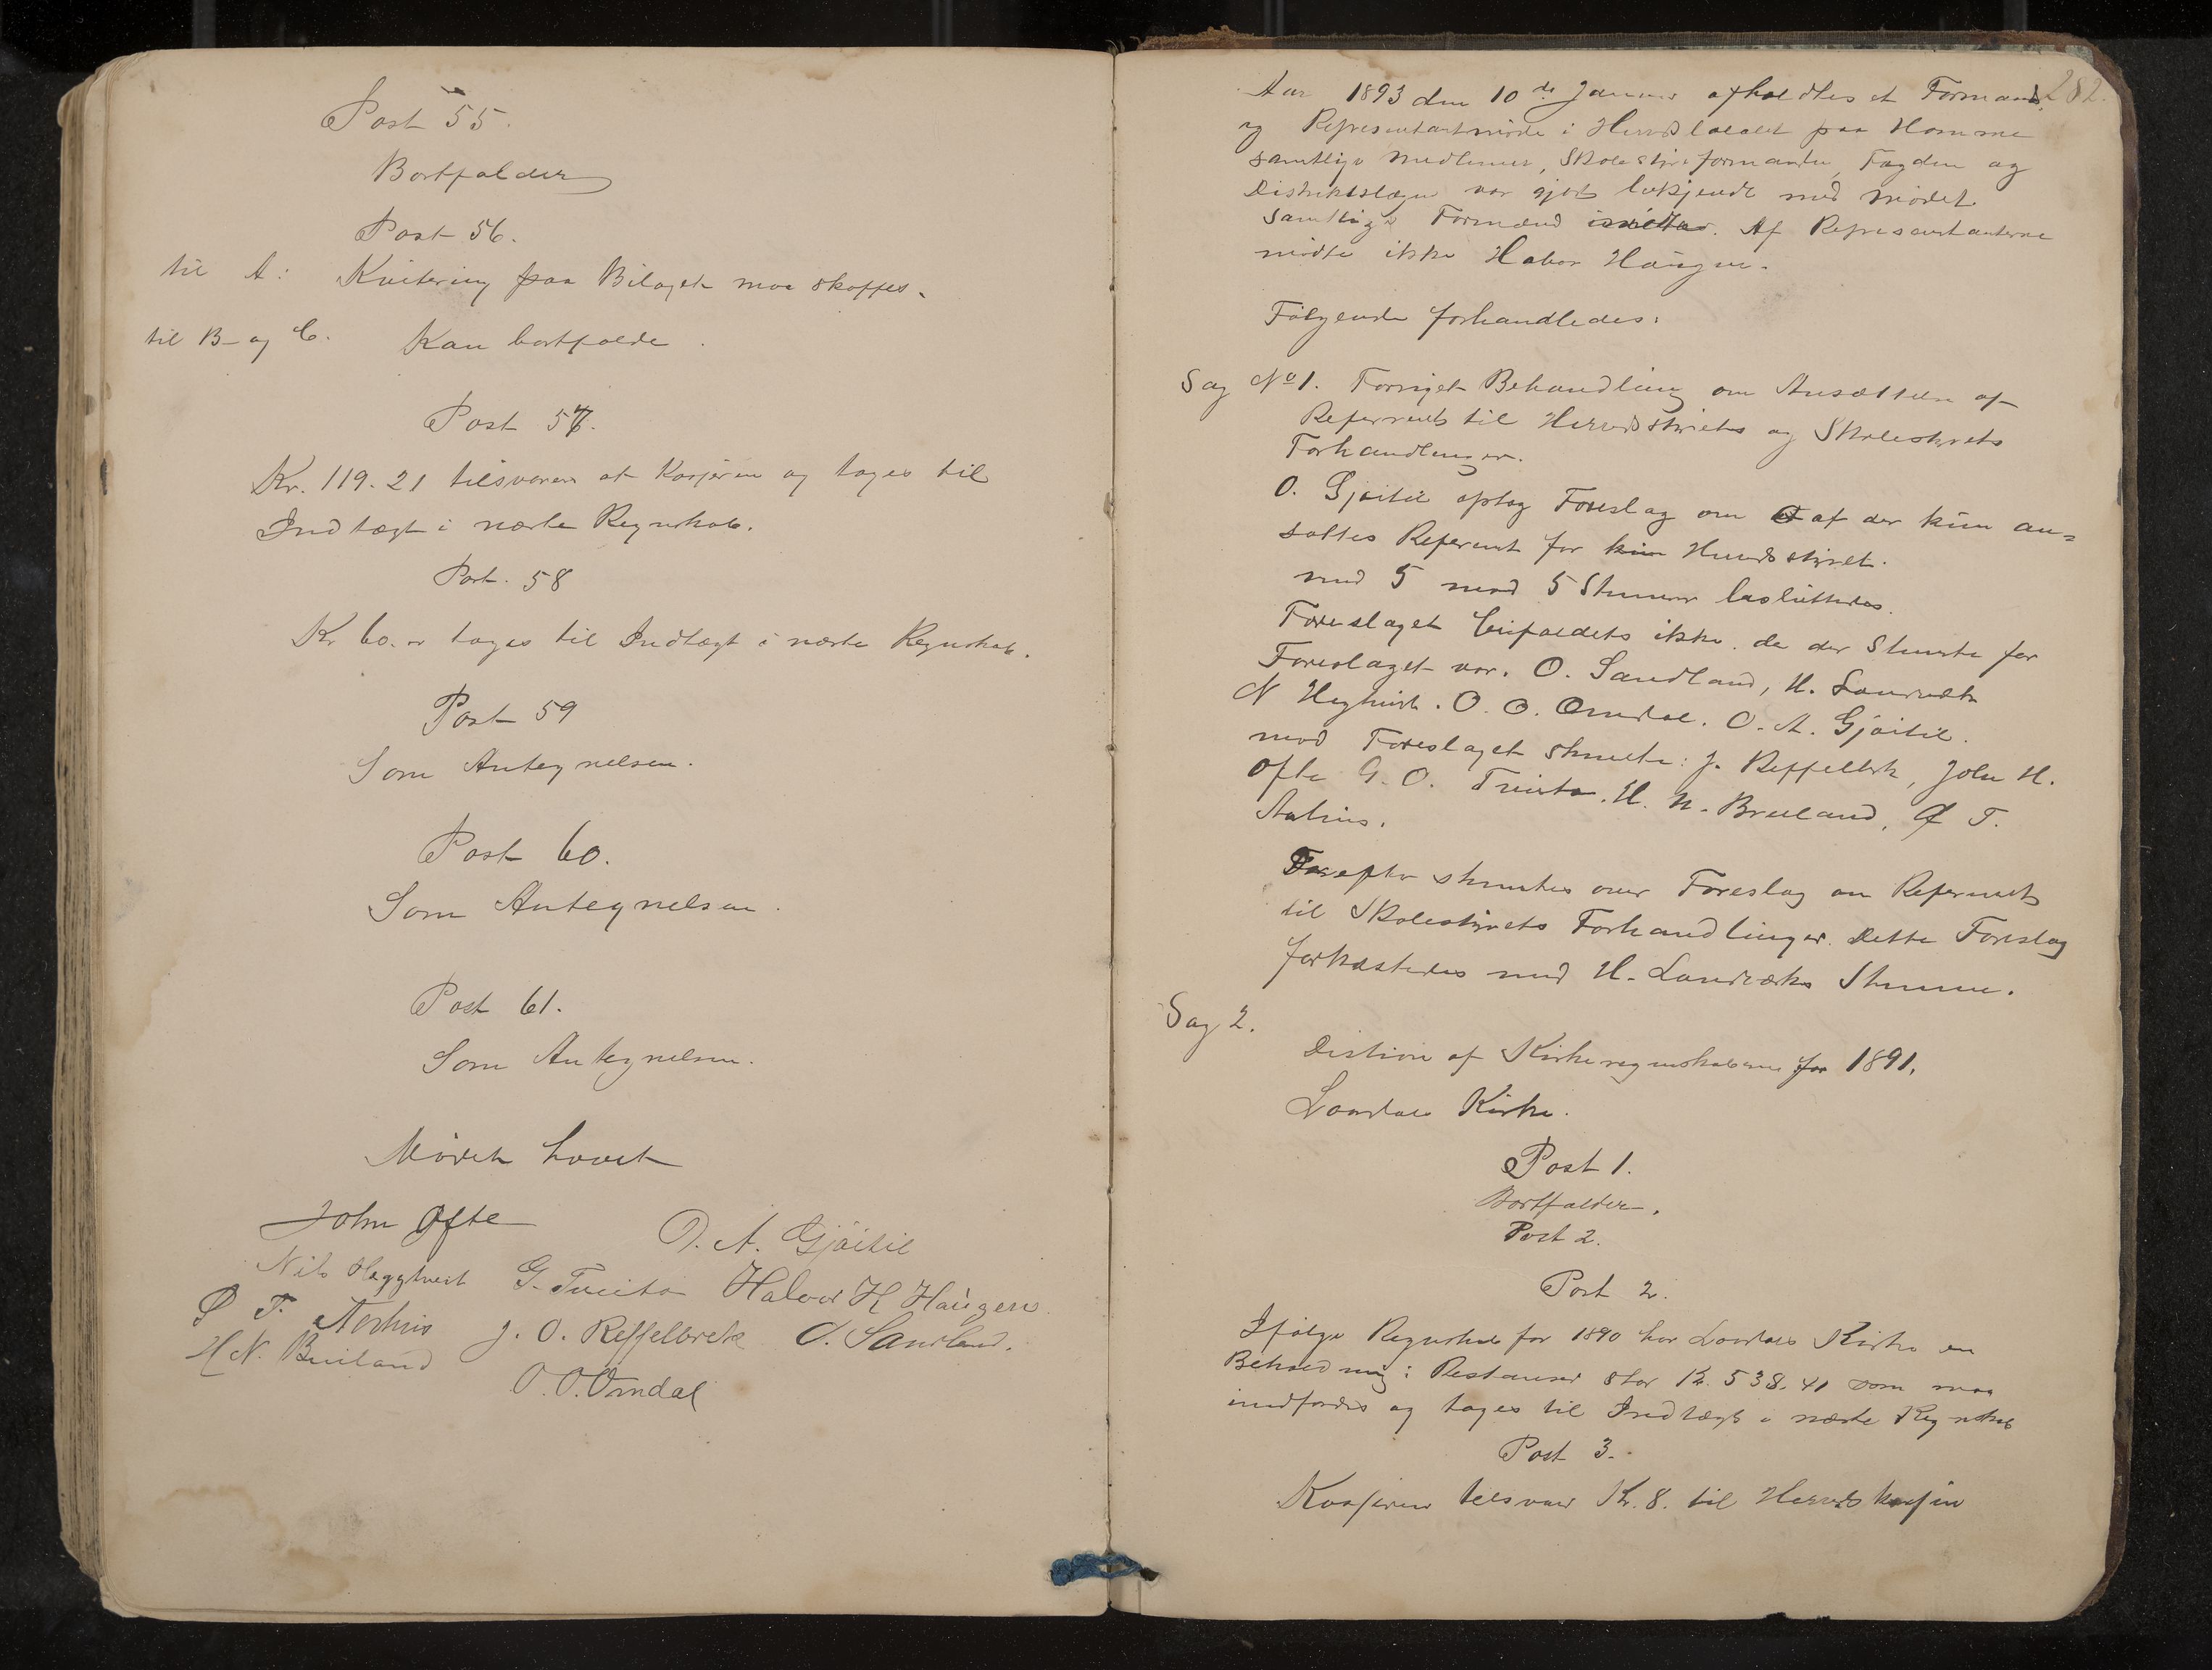 Post 55.
Bortfalder
Post 56.
til A: Kvitering paa Bilaget maa skaffes.
til B- og C. Kan bortfalde.
Post 57.
Kr. 119.21 tilsvares af Kasjeren og tages til
Indtægt i næste Regnskab.
Post. 58
Kr 60. tages til Indtægt i næste Regnskab.
Post 59
Som Antegnelsen.
Post 60.
Som Antegnelsen.
Post 61.
Som Antegnelsen.
Mødet hævet
John Ofte
O. A. Gjøitil
Nils Heggtveit G. Tveito Halvor H Haugen
Ø T. Aarhus J. O. Reffelbrek O. Sandland.
H N. Builand
O. O. Omdal
282.
Aar 1893 den 10de Januar afholdtes et Formands
og Representantmøde i Herredslocalet paa Homme
samtlige Medlemer, Skolestyreformanden, Fogden og
Distriktslægen var gjort bekjendt med Mødet
Samtlige Formænd. Af Representanterne
mødte ikke Halvor Haugen.
Følgende forhandledes:
Sag No 1. Fornyet Behandling om Ansættelse af
Referent til Herredsstyrets og Skolestyrets
Forhandlinger.
O. Gjøitil optog Foreslag om at der kun an=
sattes Referent for Herredsstyret.
med 5 mod 5 Stemmer besluttedes.
Foreslaget bifaldets ikke. da der Stemte for
Foreslaget var. O. Sandland, H. Landværk
N Hegtveit. O. O. Omdal. O. A. Gjøitil.
mod Foreslaget stemte: J. Reffelbrek, John H.
Ofte G. O. Tveito. H. N. Builand, Ø T.
Aarhus.
Derefter stemtes over Foreslag om Referent
til Skolestyrets Forhandlinger. Dette Foreslag
forkastedes mod H. Landværks Stemme.
Sag 2.
Desision af Kirkeregnskaberne for 1891.
Laardals Kirke.
Post 1.
Bortfalder.
Post 2.
Post 2.
Ifølge Regnskab for 1890 har Laardals Kirke en
Beholdning i Restanser stor Kr. 538.41 som maa
indfordres og tages til Indtægt i næste Regnskab
Post 3.
Kasjeren tilsvarer Kr. 8. til Herredskassen